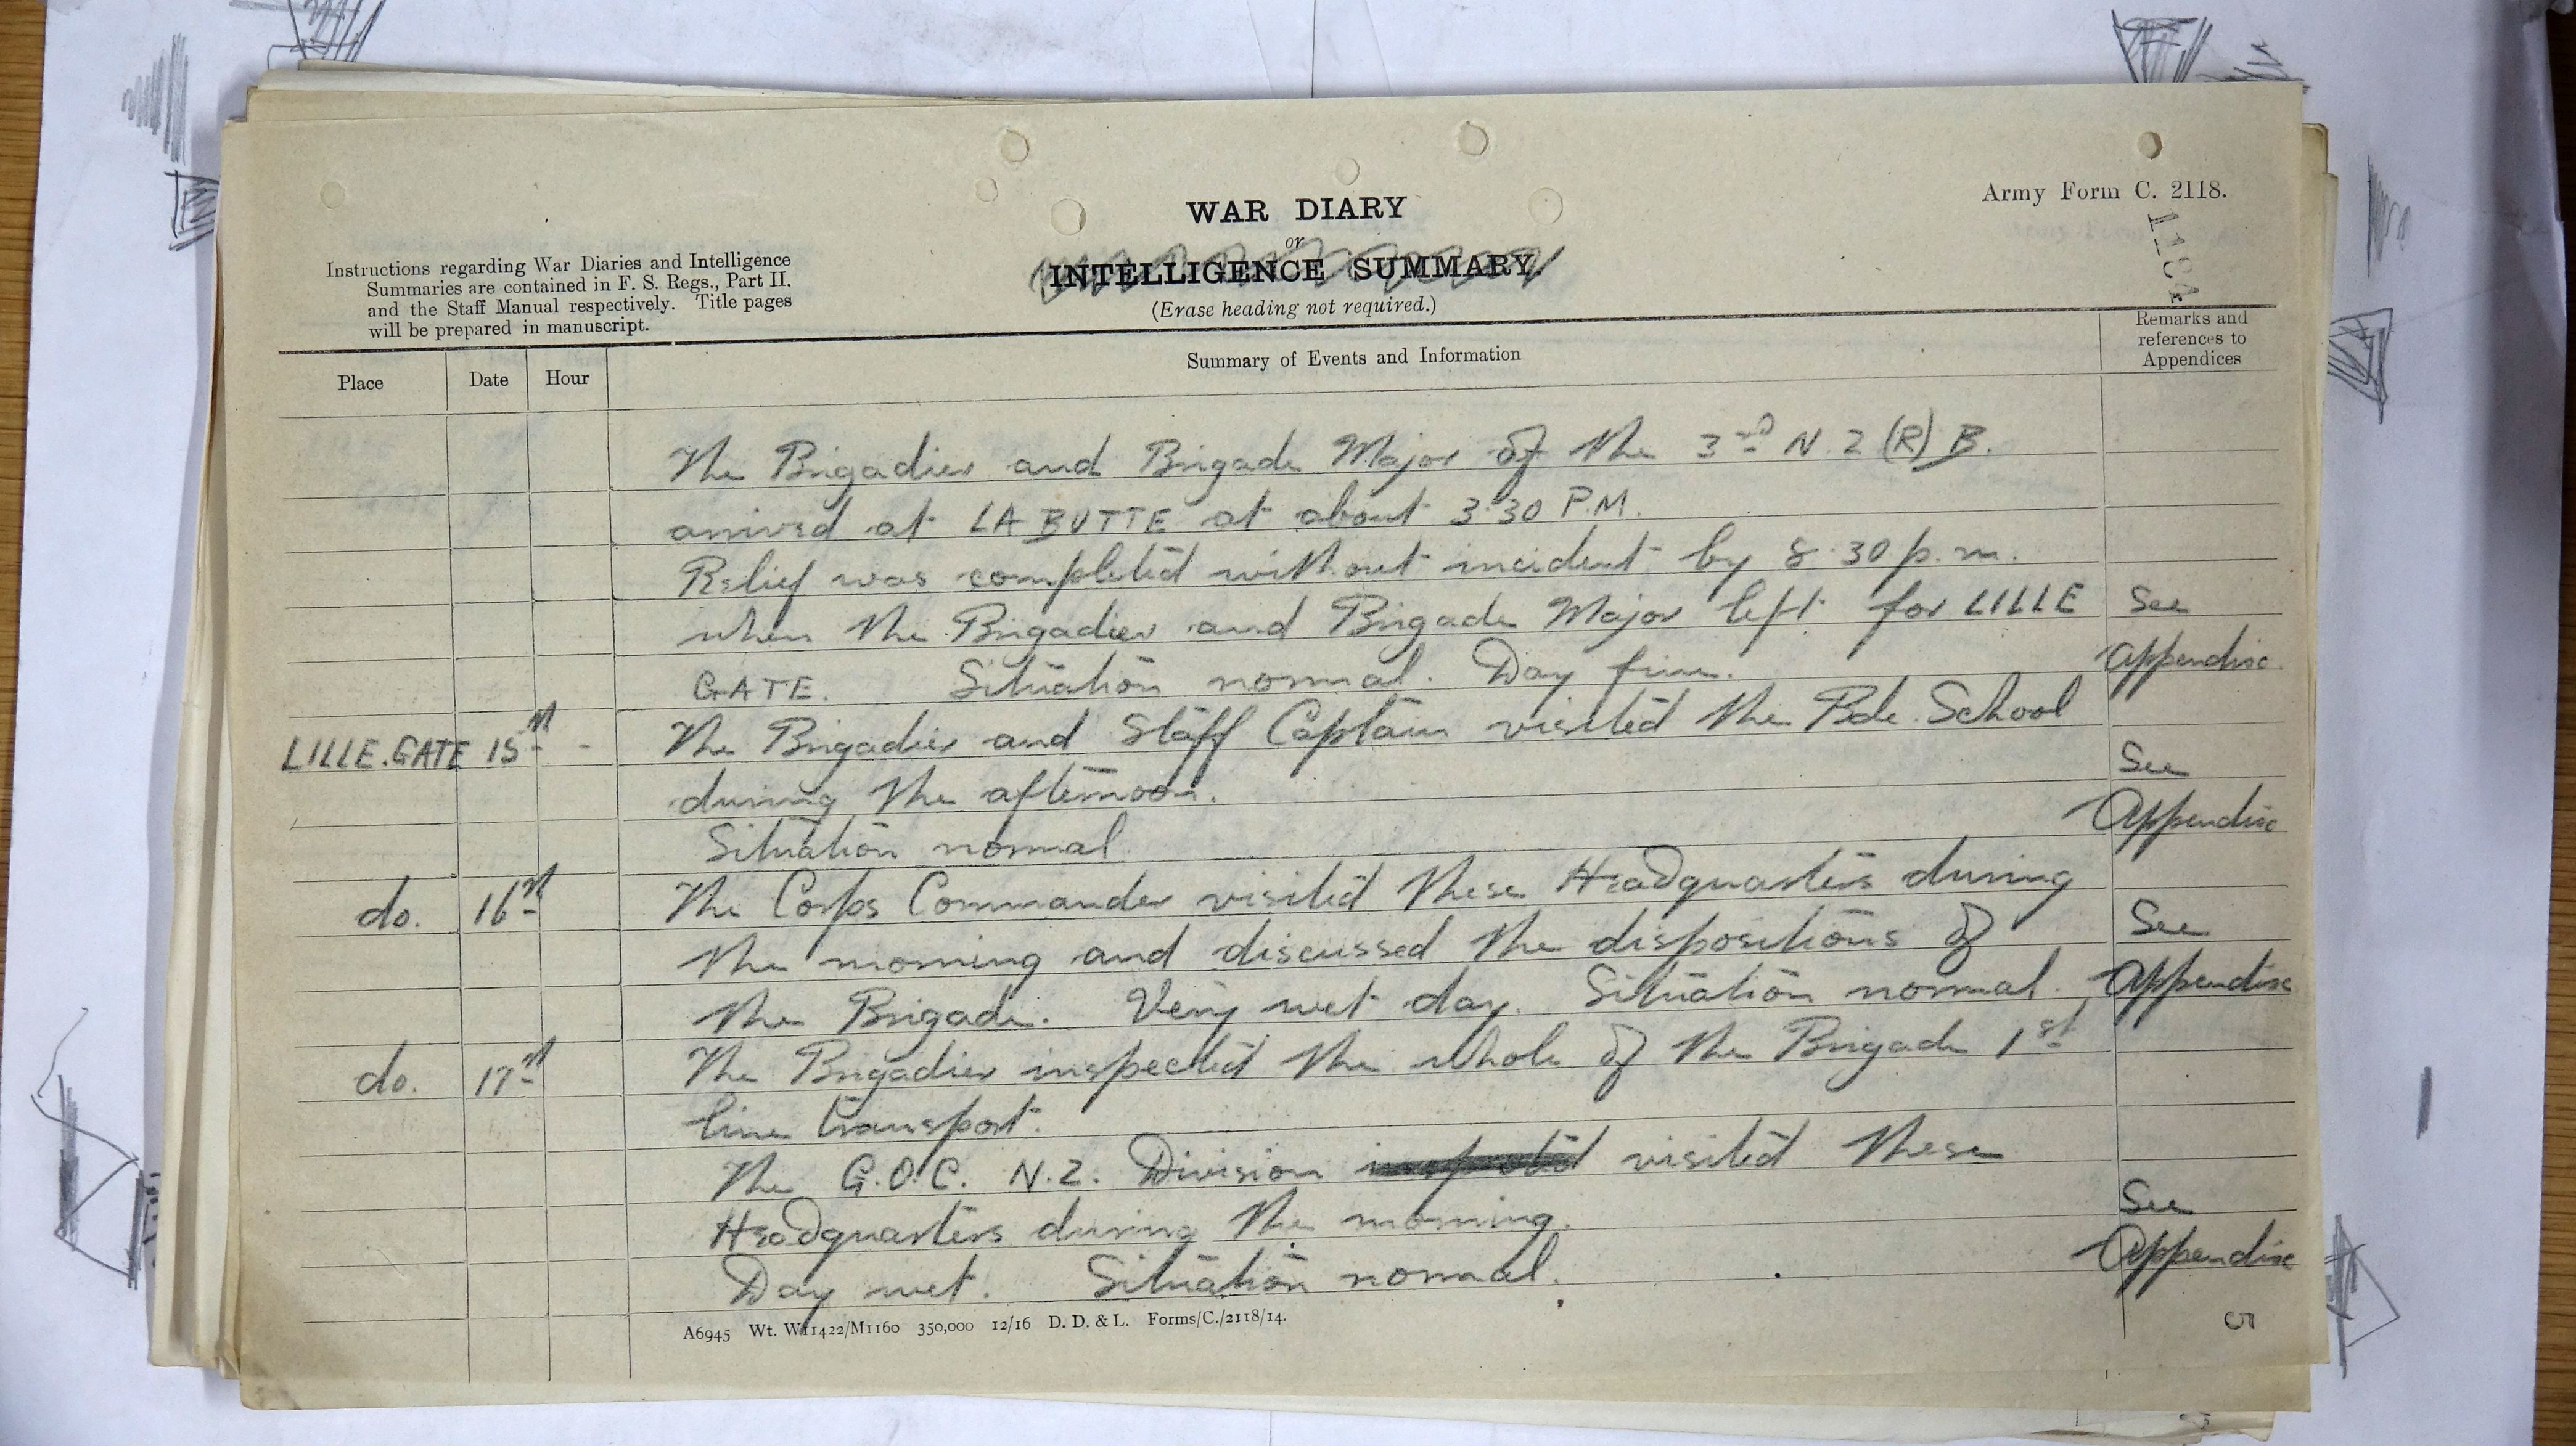 Army Form C. 2118.
1184
WAR DIARY
or
INTELLIGENCE SUMMARY.
(Erase heading not required.)
Instructions regarding War Diaries and Intelligence
Summaries are contained in F. S. Regs., Part II.
and the Staff Manual respectively. Title pages
will be prepared in manuscript.
Place Date Hour Summary of Events and Information Remarks and
references to
Appendices
The Brigadier and Brigade Major of the 3rd N.Z (R) B.
arrived at LA BUTTE at about 3.30 P.M.
Relief was completed without incident by 8.30 p.m.
when the Brigadier and Brigade Major left for LILLE See
GATE. Situation normal. Day fine. Appendix
LILLE.GATE 15th - The Brigadier and Staff Captain visited the Bde. School
during the afternoon. See
Situation normal Appendix
do. 16th The Corps Commander visited these Headquarters during
the morning and discussed the dispositions of See
the Brigade. Very wet day. Situation normal. Appendix
do. 17th The Brigadier inspected the whole of the Brigade 1st
line transport.
The G.O.C. N.Z. Division inspected visited these
Headquarters during the morning. See
Day wet. Situation normal. Appendix
A6945 Wt. W11422/M1160 350,000 12/16 D. D. & L. Forms/C./2118/14.
5